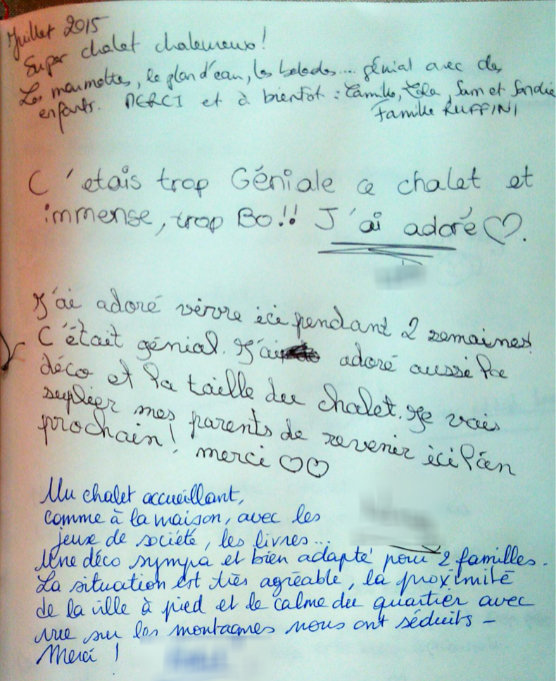 Juillet 2015
Super chalet chaleureux!
Les marmottes, le plan d'eau, les balades.... génial avec des
enfants. MERCI et à bientôt : Camille, Lola, Sam et Sandie
Famille RUFFINI
C'étais trop Géniale ce chalet et
immense, trop Bo!! J'ai adoré ♡.
J'ai adoré vivre ici pendant 2 semaines.
C'était génial. J'ai adoré aussi la
déco et la taille du chalet. Je vais
suplier mes parents de revenir ici l'an
prochain! merci ♡♡
Un chalet accueillant,
comme à la maison, avec les
jeux de société, les livres...
Une déco sympa et bien adapté pour 2 familles.
La situation est très agréable, la proximité
de la ville à pied et le calme du quartier avec
vue sur les montagnes nous ont séduits -
Merci !